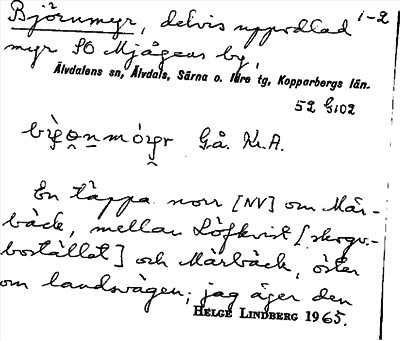 Björnmyr, delvis uppodlad i-2
myr SO Mjågens by,
Älvdalens sn, Älvdals, Särna o. Idre tg, Kopparbergs län.
52 G102
Gå. Kr. A.
En täppa norr [NV] om Mår-
bäck, mellan Löfkvist [skogv.-
bostället] och Mårbäck, öster
om landsvägen; jag äger den
HELGE LINDBERG 1965.